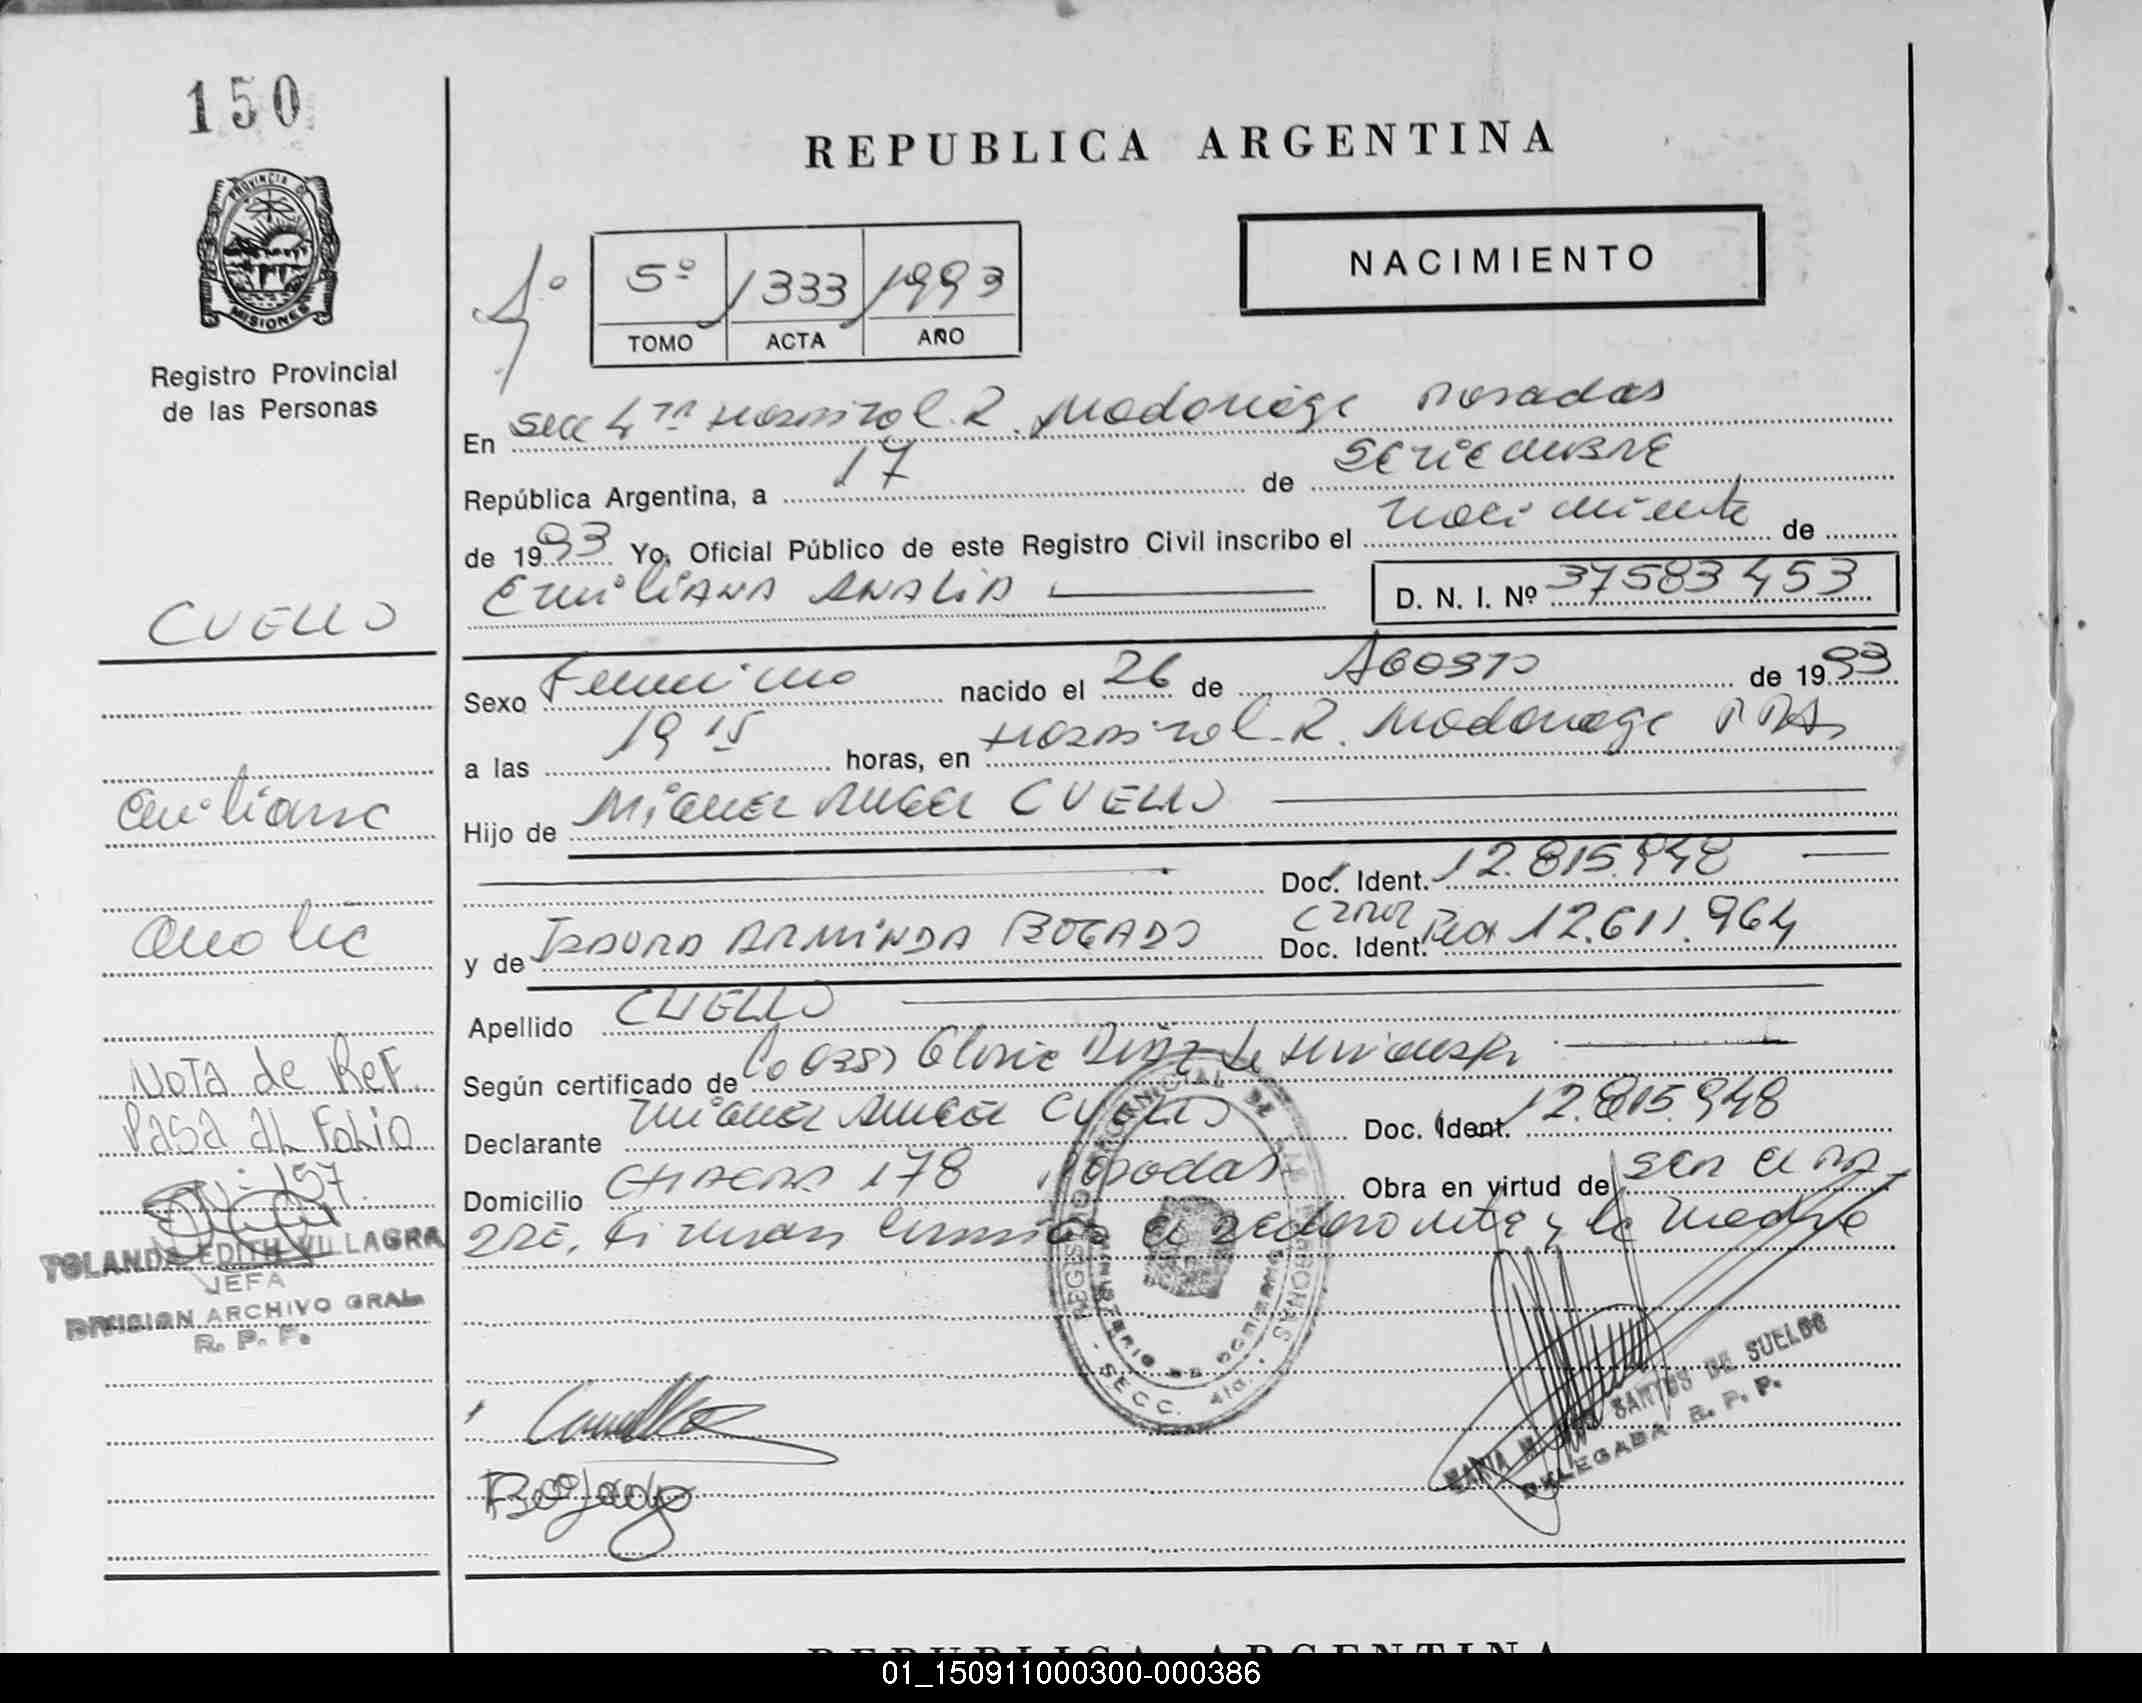 150
REPUBLICA ARGENTINA
PROVINCIA DE
MISIONES
Registro Provincial
de las Personas
NACIMIENTO
5º 1333 1993
TOMO ACTA AÑO
En Secc 4ta Hospital R. Madariaga Posadas
República Argentina, a 17 de Setiembre
de 1993 Yo, Oficial Público de este Registro Civil inscribo el nacimiento de
Emiliana Analia D. N. I. Nº 37583453
CUELLO
Sexo Femenino nacido el 26 de Agosto de 1993
a las 19 15 horas, en Hospital R. Madariaga Pdas
Emiliana
Hijo de Miguel Angel CUELLO
Doc. Ident. 12.815.948
Analia
y de Isaura Arminda BOGADO Doc. Ident. 12.611.964
Apellido CUELLO
Nota de Ref.
Según certificado de Gloria
Pasa al Folio
Declarante Miguel Angel Cuello Doc. Ident. 12.815.948
Nº 157.
Domicilio Chacra 178 Posadas Obra en virtud de ser el pa
dre. Firman el declarante y la madre
YOLANDA EDITH VILLAGRA
JEFA
DIVISION ARCHIVO GRAL.
R. P. P.
REGISTRO PROVINCIAL DE LAS PERSONAS
MINISTERIO DE GOBIERNO
SECC. 4ta.
SANTOS DE SUELDO
DELEGADA R. P. P.
Bogado
REPUBLICA ARGENTINA
01_150911000300-000386